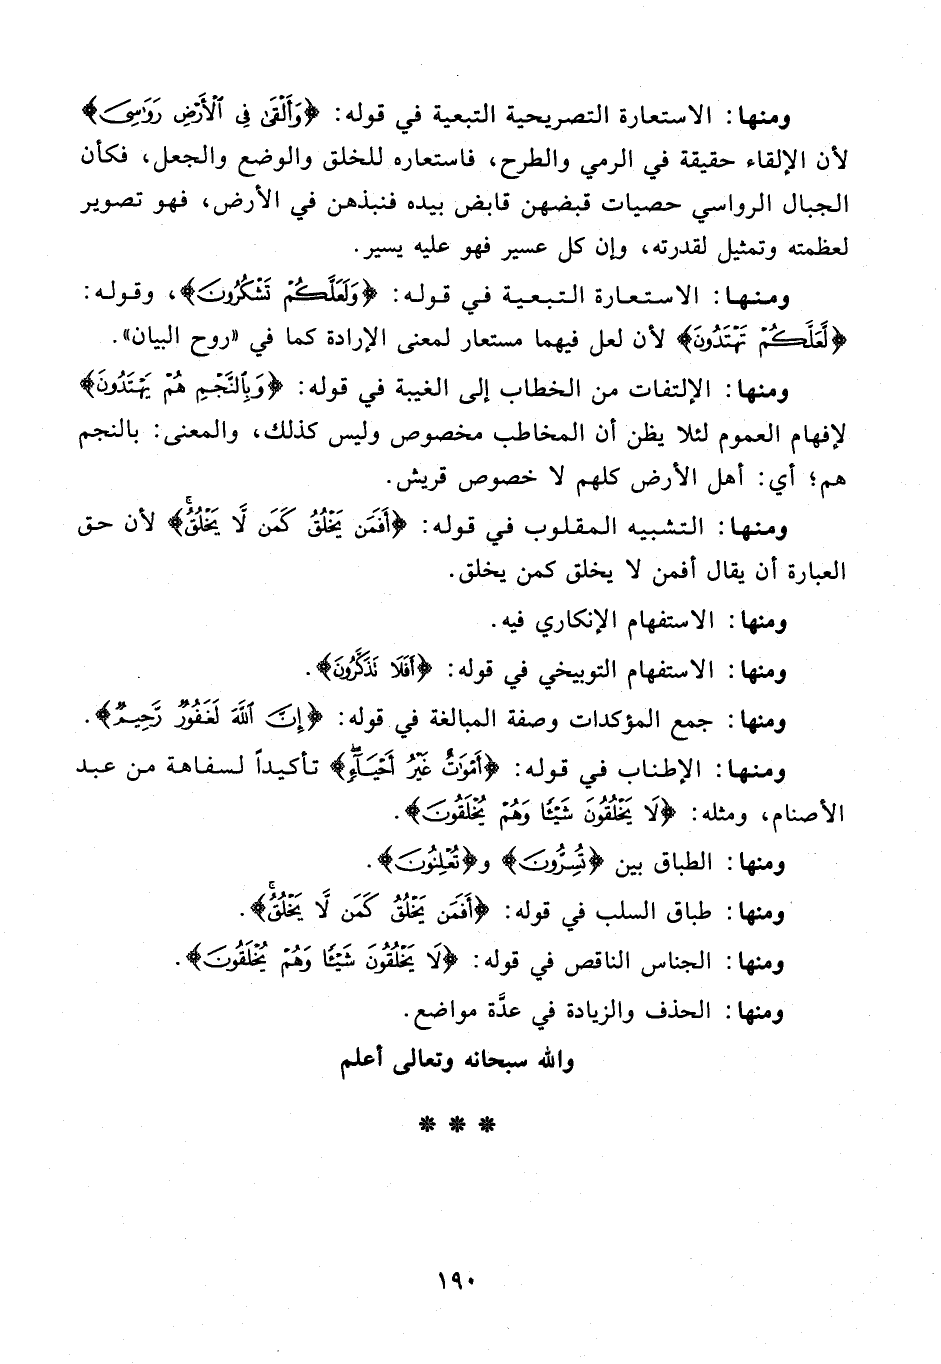 ومنها: الاستعارة التصريحية التبعية في قوله: ﴿وَأَلْقَىٰ فِي ٱلْأَرْضِ رَوَاسِيَ﴾
لأن الإلقاء حقيقة في الرمي والطرح، فاستعاره للخلق والوضع والجعل، فكأن
الجبال الرواسي حصيات قبضهن قابض بيده فنبذهن في الأرض، فهو تصوير
لعظمته وتمثيل لقدرته، وإن كل عسير فهو عليه يسير.
ومنها: الاستعارة التبعية في قوله: ﴿وَلَعَلَّكُمْ تَشْكُرُونَ﴾، وقوله:
﴿لَّعَلَّكُمْ تَهْتَدُونَ﴾ لأن لعل فيهما مستعار لمعنى الإرادة كما في «روح البيان».
ومنها: الإلتفات من الخطاب إلى الغيبة في قوله: ﴿وَبِٱلنَّجْمِ هُمْ يَهْتَدُونَ﴾
لإفهام العموم لئلا يظن أن المخاطب مخصوص وليس كذلك، والمعنى: بالنجم
هم؛ أي: أهل الأرض كلهم لا خصوص قريش.
ومنها: التشبيه المقلوب في قوله: ﴿أَفَمَن يَخْلُقُ كَمَن لَّا يَخْلُقُۚ﴾ لأن حق
العبارة أن يقال أفمن لا يخلق كمن يخلق.
ومنها: الاستفهام الإنكاري فيه.
ومنها: الاستفهام التوبيخي في قوله: ﴿أَفَلَا تَذَكَّرُونَ﴾.
ومنها: جمع المؤكدات وصفة المبالغة في قوله: ﴿إِنَّ ٱللَّهَ لَغَفُورٌ رَّحِيمٌ﴾.
ومنها: الإطناب في قوله: ﴿أَمْوَٰتٌ غَيْرُ أَحْيَآءٍۖ﴾ تأكيداً لسفاهة من عبد
الأصنام، ومثله: ﴿لَا يَخْلُقُونَ شَيْـًٔا وَهُمْ يُخْلَقُونَ﴾.
ومنها: الطباق بين ﴿تُسِرُّونَ﴾ و﴿تُعْلِنُونَ﴾.
ومنها: طباق السلب في قوله: ﴿أَفَمَن يَخْلُقُ كَمَن لَّا يَخْلُقُۚ﴾.
ومنها: الجناس الناقص في قوله: ﴿لَا يَخْلُقُونَ شَيْـًٔا وَهُمْ يُخْلَقُونَ﴾.
ومنها: الحذف والزيادة في عدَّة مواضع.
والله سبحانه وتعالى أعلم
* * *
١٩٠